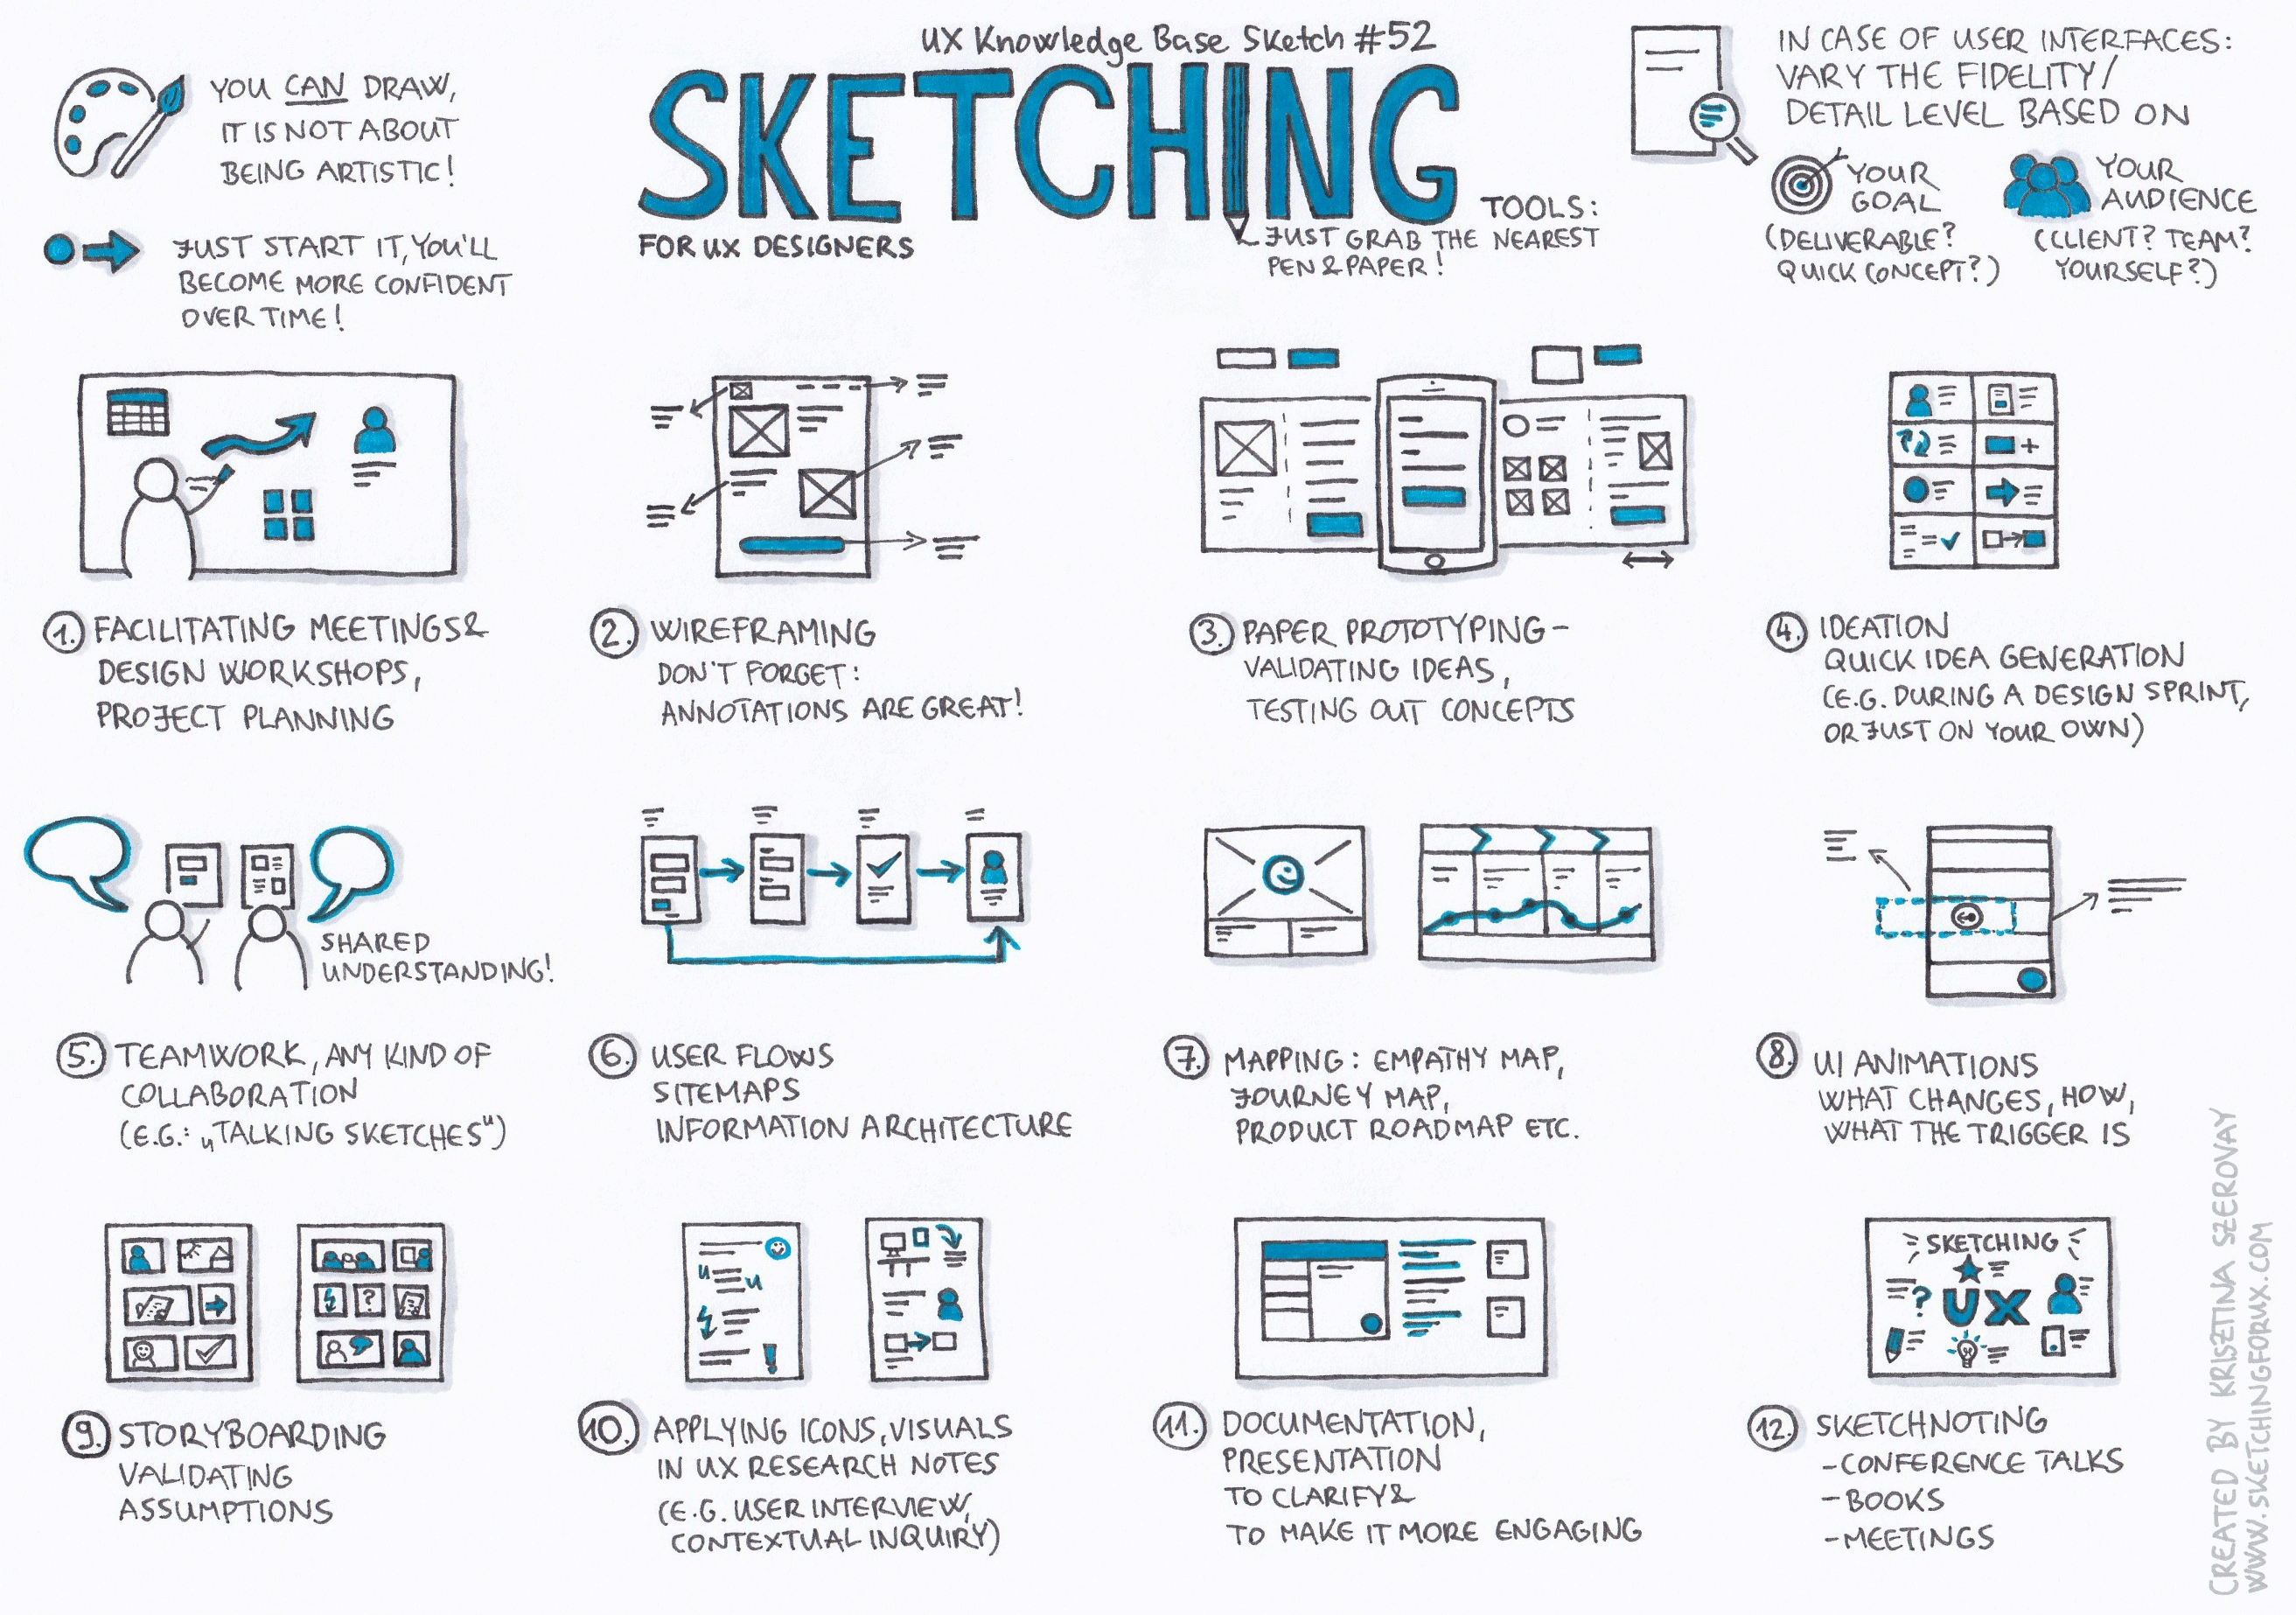 UX Knowledge Base Sketch #52
SKETCHING
FOR UX DESIGNERS
TOOLS:
JUST GRAB THE NEAREST
PEN & PAPER!
YOU CAN DRAW,
IT IS NOT ABOUT
BEING ARTISTIC!
JUST START IT, YOU'LL
BECOME MORE CONFIDENT
OVER TIME!
IN CASE OF USER INTERFACES:
VARY THE FIDELITY/
DETAIL LEVEL BASED ON
YOUR
GOAL
(DELIVERABLE?
QUICK CONCEPT?)
YOUR
AUDIENCE
(CLIENT? TEAM?
YOURSELF?)
1. FACILITATING MEETINGS &
DESIGN WORKSHOPS,
PROJECT PLANNING
2. WIREFRAMING
DON'T FORGET:
ANNOTATIONS ARE GREAT!
3. PAPER PROTOTYPING –
VALIDATING IDEAS,
TESTING OUT CONCEPTS
4. IDEATION
QUICK IDEA GENERATION
(E.G. DURING A DESIGN SPRINT,
OR JUST ON YOUR OWN)
SHARED
UNDERSTANDING!
5. TEAMWORK, ANY KIND OF
COLLABORATION
(E.G.: „TALKING SKETCHES")
6. USER FLOWS
SITEMAPS
INFORMATION ARCHITECTURE
7. MAPPING: EMPATHY MAP,
JOURNEY MAP,
PRODUCT ROADMAP ETC.
8. UI ANIMATIONS
WHAT CHANGES, HOW,
WHAT THE TRIGGER IS
?
9. STORYBOARDING
VALIDATING
ASSUMPTIONS
!
10. APPLYING ICONS, VISUALS
IN UX RESEARCH NOTES
(E.G. USER INTERVIEW,
CONTEXTUAL INQUIRY)
11. DOCUMENTATION,
PRESENTATION
TO CLARIFY &
TO MAKE IT MORE ENGAGING
SKETCHING
? UX
12. SKETCHNOTING
- CONFERENCE TALKS
- BOOKS
- MEETINGS
CREATED BY KRISZTINA SZEROVAY
WWW.SKETCHINGFORUX.COM